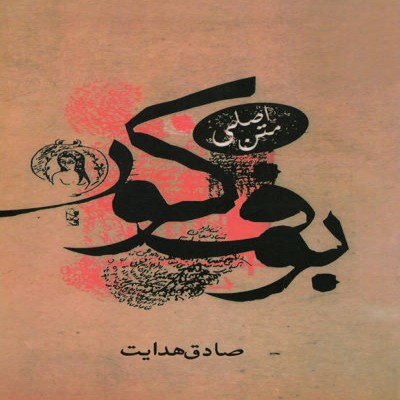 متن اصلی
بوف کور
صادق هدایت